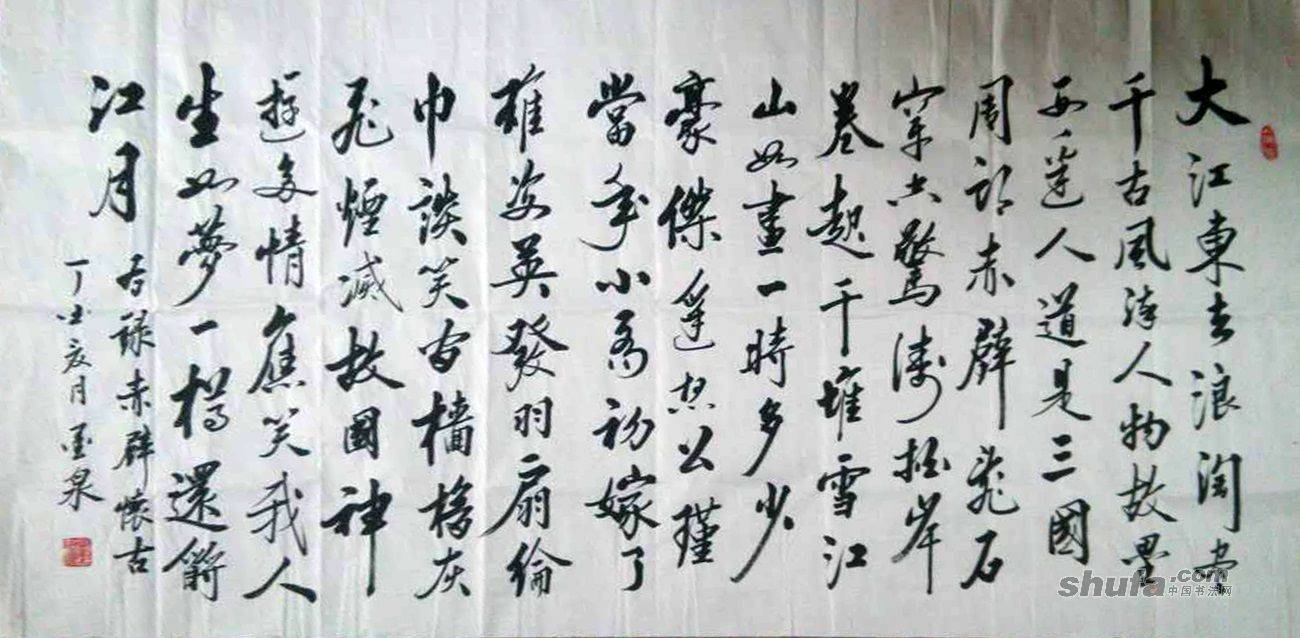 大江東去浪淘盡
千古風流人物故壘
西邊人道是三國
周郎赤壁亂石
穿空驚濤拍岸
卷起千堆雪江
山如畫一時多少
豪傑遙想公瑾
當年小喬初嫁了
雄姿英發羽扇綸
巾談笑間檣櫓灰
飛煙滅故國神
遊多情應笑我人
生如夢一樽還酹
江月
右錄赤壁懷古
丁夏月墨泉
shufa.com
中国书法网